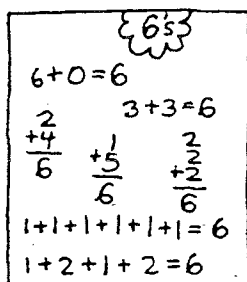 6's
6+0=6
3+3=6
2
+4
6
1
+5
6
2
2
+2
6
1+1+1+1+1+1=6
1+2+1+2=6